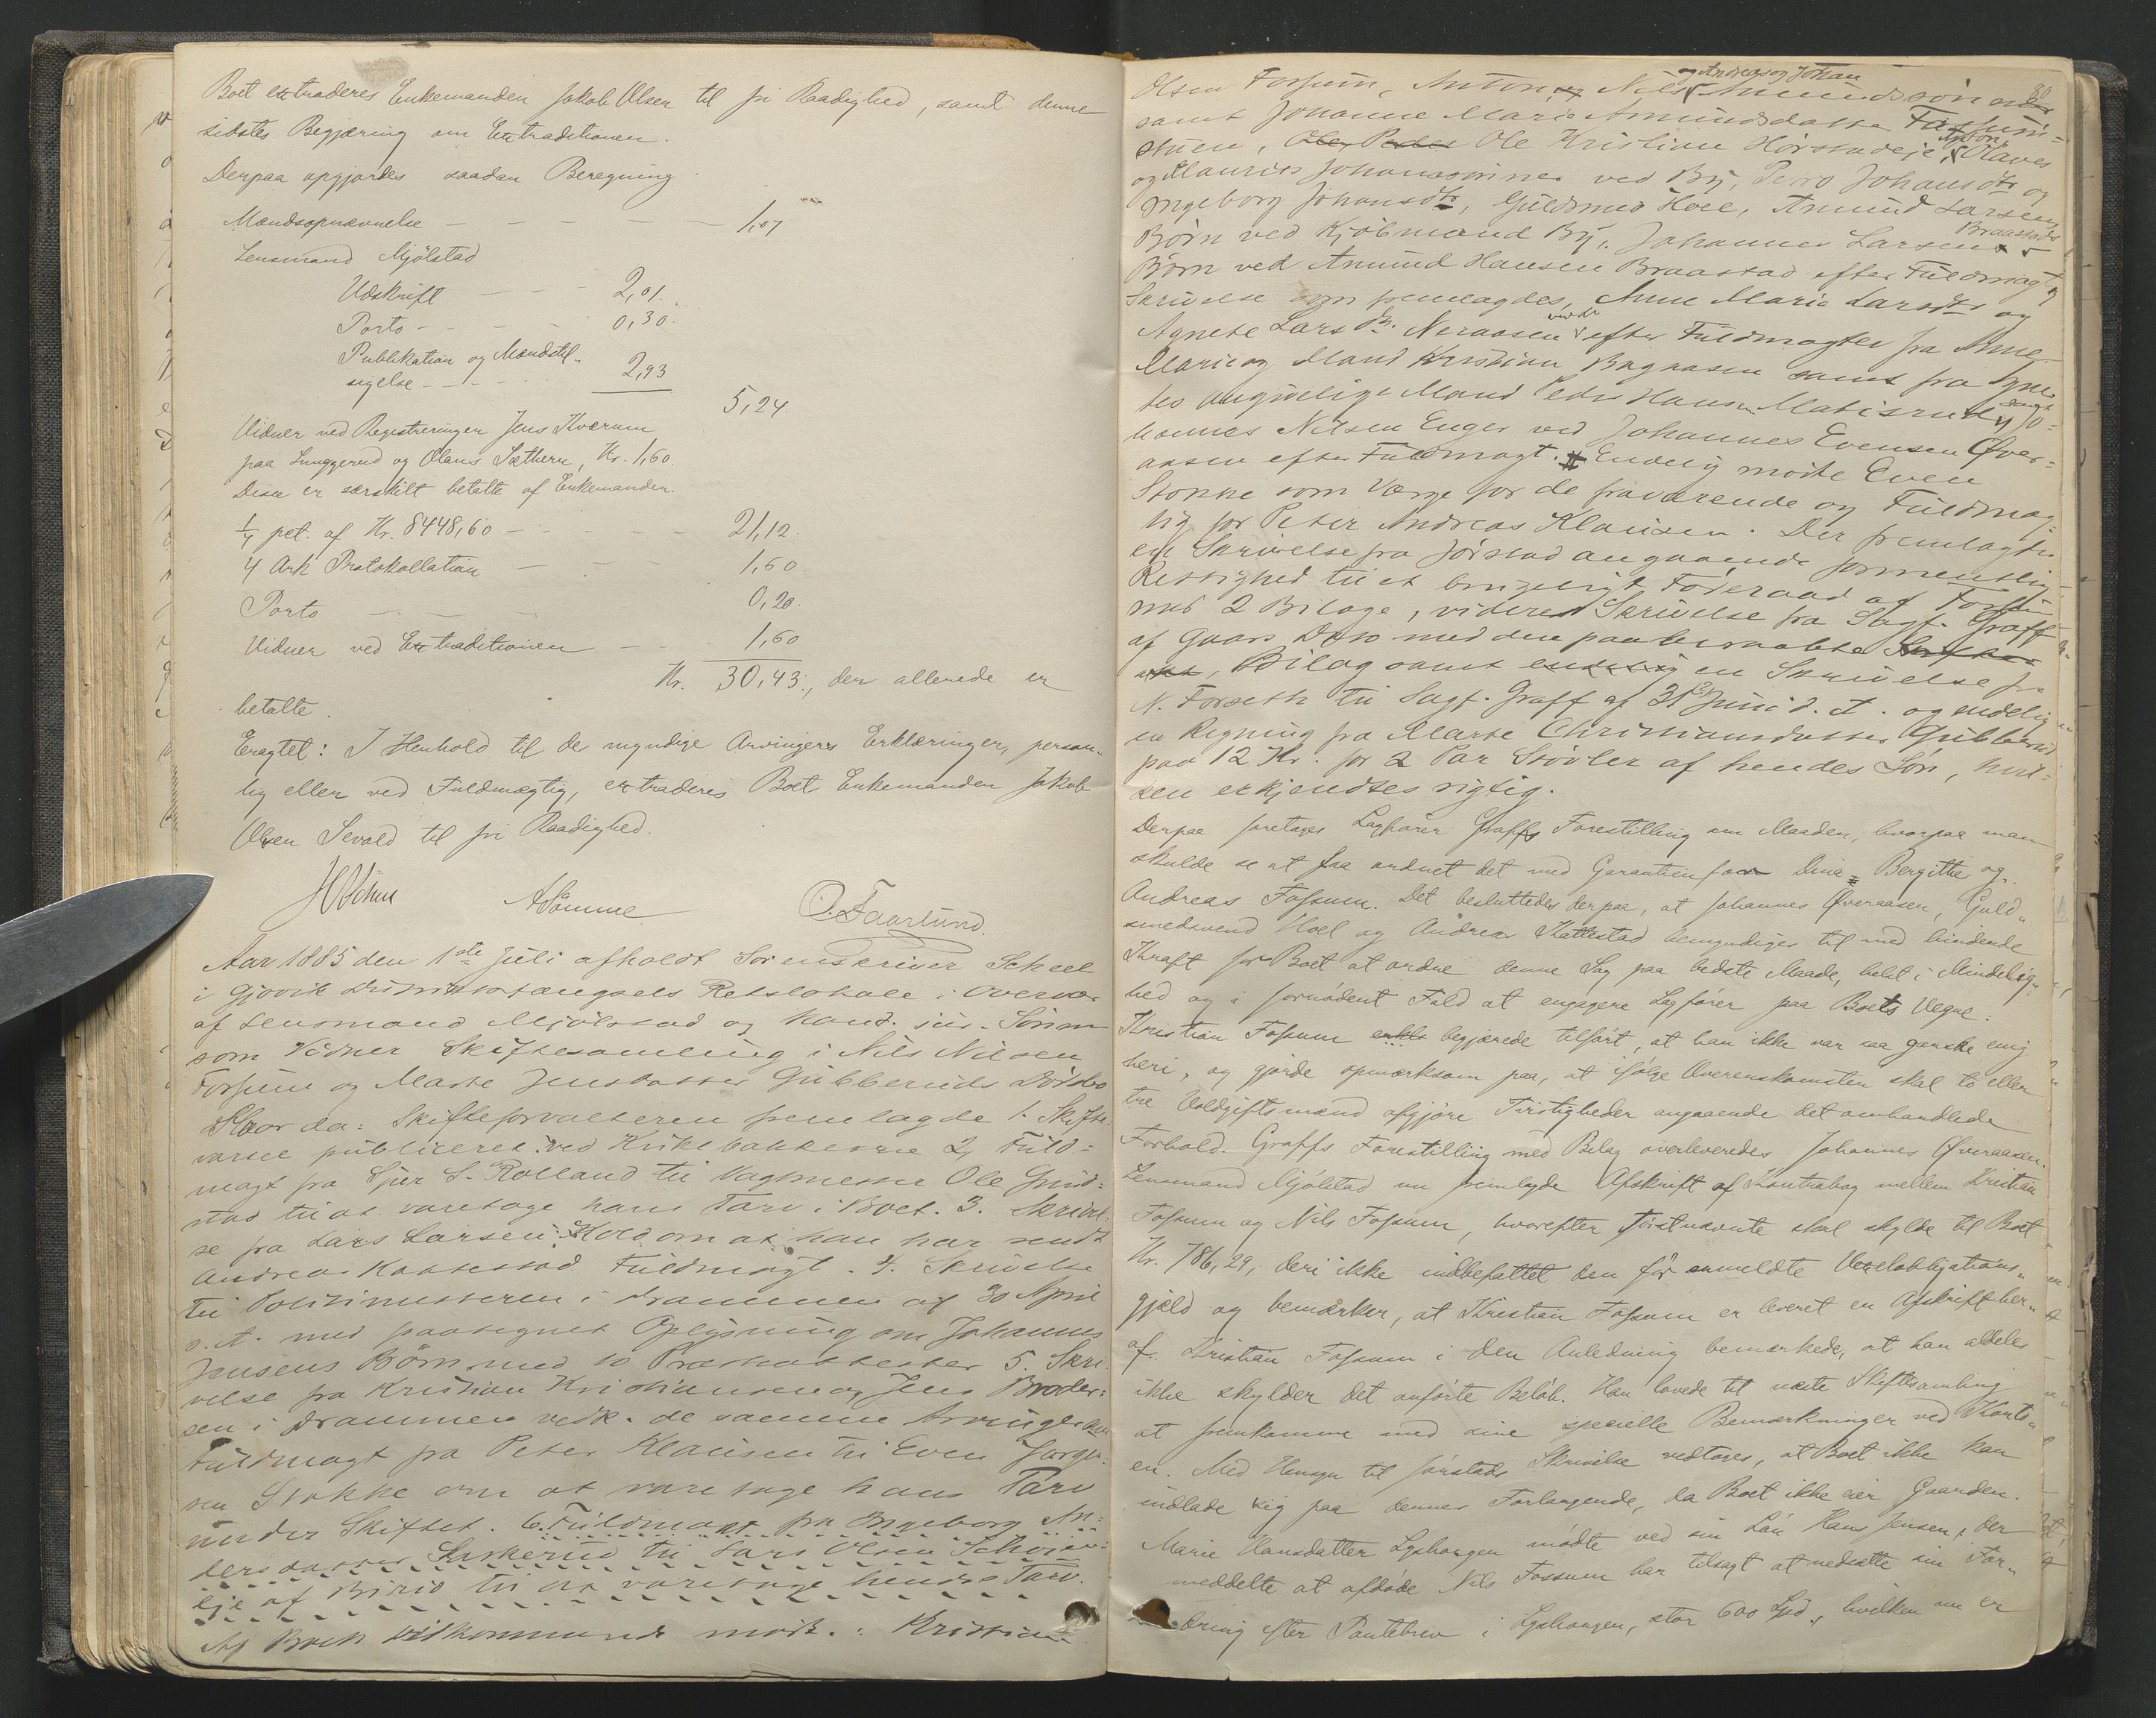 Boet extraderes Enkemanden Jakob Olsen til fri Raadighed, samt denne
sidstes Begjæring om Extraditionen.
Derpaa opgjordes saadan Beregning
Mandsopnævnelse — — — 1,07
Lensmand Mjölstad
Udskrift — — 2,01.
Porto — — 0,30.
Publikation og Mandstil„
sigelse — — 2,93
5,24.
Vidner ved Registreringen Jens Kværum
paa Lunggerud og Olaus Sæthern, Kr. 1,60.
Disse er særskilt betalte af Enkemanden.
¼ pct. af Kr. 8448,60 — — 21,12.
4 Ark Protokollation — — 1,60.
Porto — — 0,20.
Vidner ved Extraditionen — — 1,60
Kr. 30,43., der allerede er
betalte.
Eragtet: I Henhold til de myndige Arvingers Erklæringer, person„
lig eller ved Fuldmægtig, extraderes Boet Enkemanden Jakob
Olsen Sevald til fri Raadighed.
A Sömme O. Faarlund.
Aar 1885 den 1ste Juli afholdt Sorenskriver Scheel
i Gjövik Distriktsfængsels Retslokale i Overvær
af Lensmand Mjölstad og Kand. jur. Sömme
som Vidner Skiftesamling i Nils Nilsen
Fossum og Marte Jensdatter Gubberuds Dödsbo
Hvor da: Skifteforvalteren fremlagde 1. Skifte-
varsel publiceret ved Kirkebakkerne 2, Fuld-
magt fra Sjur S. Rolland til Vagtmester Ole Grind-
stad til at varetage hans Tarv i Boet. 3. Skrivel-
se fra Lars Larsen Hold om at han har sendt
Andreas Kattestad Fuldmagt. 4. Skrivelse
til Politimesteren i Drammen af 30 April
d. A. med paategnet Oplysning om Johannes
Jensens Börn med 10 Præsteattester 5. Skri-
velse fra Kristian Kristiansen og Jens Broder-
sen i Drammen vedk. de samme Arvinger
Fuldmagt fra Peter Klausen til Even Jörgen-
sen Stokke om at varetage hans Tarv
under Skiftet. 6. Fuldmagt fra Ingeborg An-
dersdatter til Lars Olsen
eje af Birid til at varetage hendes Tarv.
Af Boets Vedkommende mödte: Kristian
og Andreas og Johan
80
Olsen Fossum, Anton, og Nils Amundssön
samt Johanne Marie Amundsdatter Fossum-
stuen, Ole Peder Ole Kristian Hörstadeje, Anton, Olaves
og Maurits Johanssönner ved By, Johansdtr og
Ingeborg Johansdtr, Guldsmed Hoel, Amund Larsen
Braastads
Börn ved Kjöbmand By, Johannes Larsens
Börn ved Amund Hansen Braastad efter Fuldmagt og
Skrivelse som fremlagdes, Anne Marie Larsdtr og
Agnete Larsdtr. Neraasen efter Fuldmagter fra Anne
Marie og Mand Kristian Bragaasen samt fra Agne-
tes angivelige Mand Peder Hansen Matisrud, Jo-
hannes Nilsen Enger ved Johannes Evensen Över-
aasen efter Fuldmagt. Endelig mödte Even
Stokke som Værge for de fraværende og Fuldmæg-
tig for Peter Andreas Klausen. Der fremlagdes
en Skrivelse fra Jörstad angaaende formentlig
Rettighed til et Föderaad af Fossum
med 2 Bilage, videre Skrivelse fra Sagf. Graff
af Gaars Dato med den paaberaabte
Bilag samt endelig en Skrivelse fra
N. Forseth til Sagf. Graff af 31 Juni d. A. og endelig
en Regning fra Marte Christiansdatter Gubberud
paa 12 Kr. for 2 Par Stövler af hendes Sön, hvil-
ken erkjendtes rigtig.
Derpaa foretages Sagförer Graffs Forestilling om Maaden, hvorpaa man
skulde se at faa ordnet det med Garantien for Dina Bergithe og
Andreas Fossum. Det besluttedes derpaa, at Johannes Överaasen, Guld„
smedsvend Hoel og Andreas Kattestad bemyndiges til med bindende
Kraft for Boet at ordne denne Sag paa bedste Maade, helst i Mindelig„
hed og i fornödent Fald at engagere Sagförer paa Boets Vegne.
Kristian Fossum begjærede tilfört, at han ikke var saa ganske enig
heri, og gjorde opmærksom paa, at ifölge Overenskomsten skal to eller
tre Voldgiftsmænd afgjöre Tvistigheder angaaende det omhandlede
Forhold. Graffs Forestilling med Bilag overleveredes Johannes Överaasen.
Lensmand Mjölstad nu fremlagde Afskrift af Kontrabog mellem Kristian
Fossum og Nils Fossum, hvorefter förstnævnte skal skylde til Boet
Kr. 786,29, deri ikke indbefattet den för anmeldte Vexelobligations„
gjæld og bemærker, at Kristian Fossum er leveret en Afskrift her„
af. Kristian Fossum i den Anledning bemærkede, at han aldeles
ikke skylder det anförte Belöb. Han lovede til næste Skiftesamling
at fremkomme med sine specielle Bemærkninger ved Konto„
en. Med Hensyn til Jörstads Skrivelse vedtages, at Boet ikke kan
indlade sig paa dennes Forlangende, da Boet ikke eier Gaarden.
Marie Hansdatter Lyshaugen mödte ved sin Sön Hans Jensen, der
meddelte at afdöde Nils Fossum har tilsagt at nedsætte sin For„
dring efter Pantebrev i Lyshaugen, stor 600 Spd., hvilken nu er